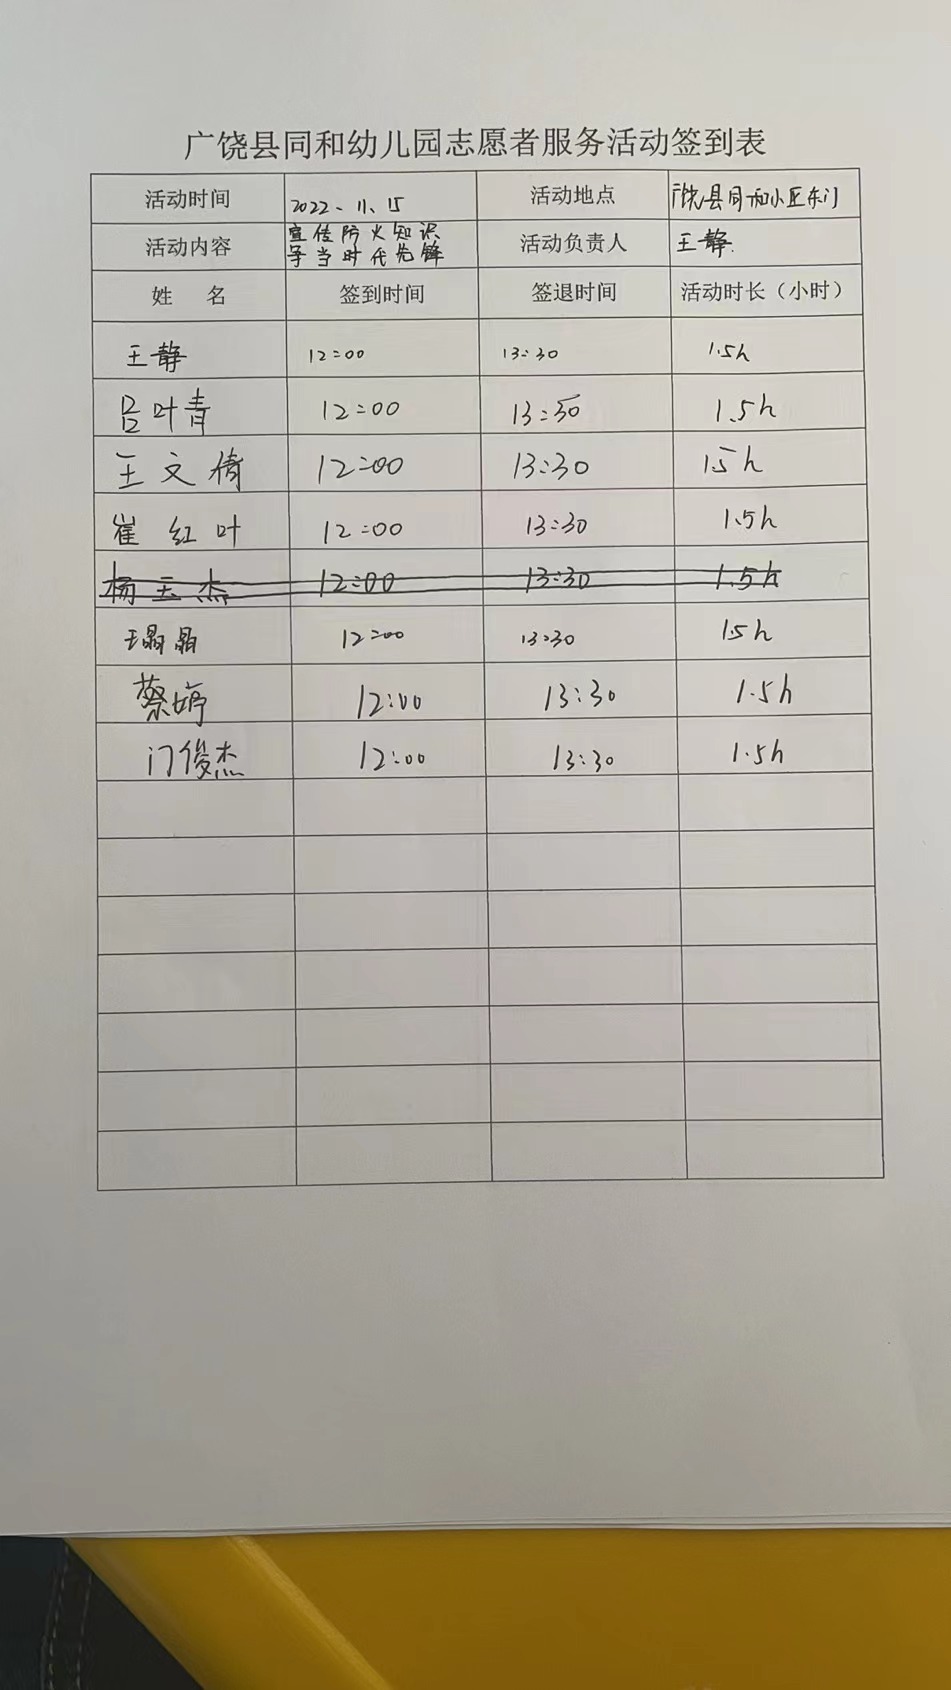 广饶县同和幼儿园志愿者服务活动签到表
活动时间 2022、11、15 活动地点 广饶县同和小区东门
活动内容 宣传防火知识 争当时代先锋 活动负责人 王静
姓 名 签到时间 签退时间 活动时长（小时）
王静 12:00 13:30 1.5h
吕叶青 12:00 13:30 1.5h
王文倩 12:00 13:30 1.5h
崔红叶 12:00 13:30 1.5h
杨玉杰 12:00 13:30 1.5h
王晶晶 12:00 13:30 1.5h
蔡婷 12:00 13:30 1.5h
门俊杰 12:00 13:30 1.5h